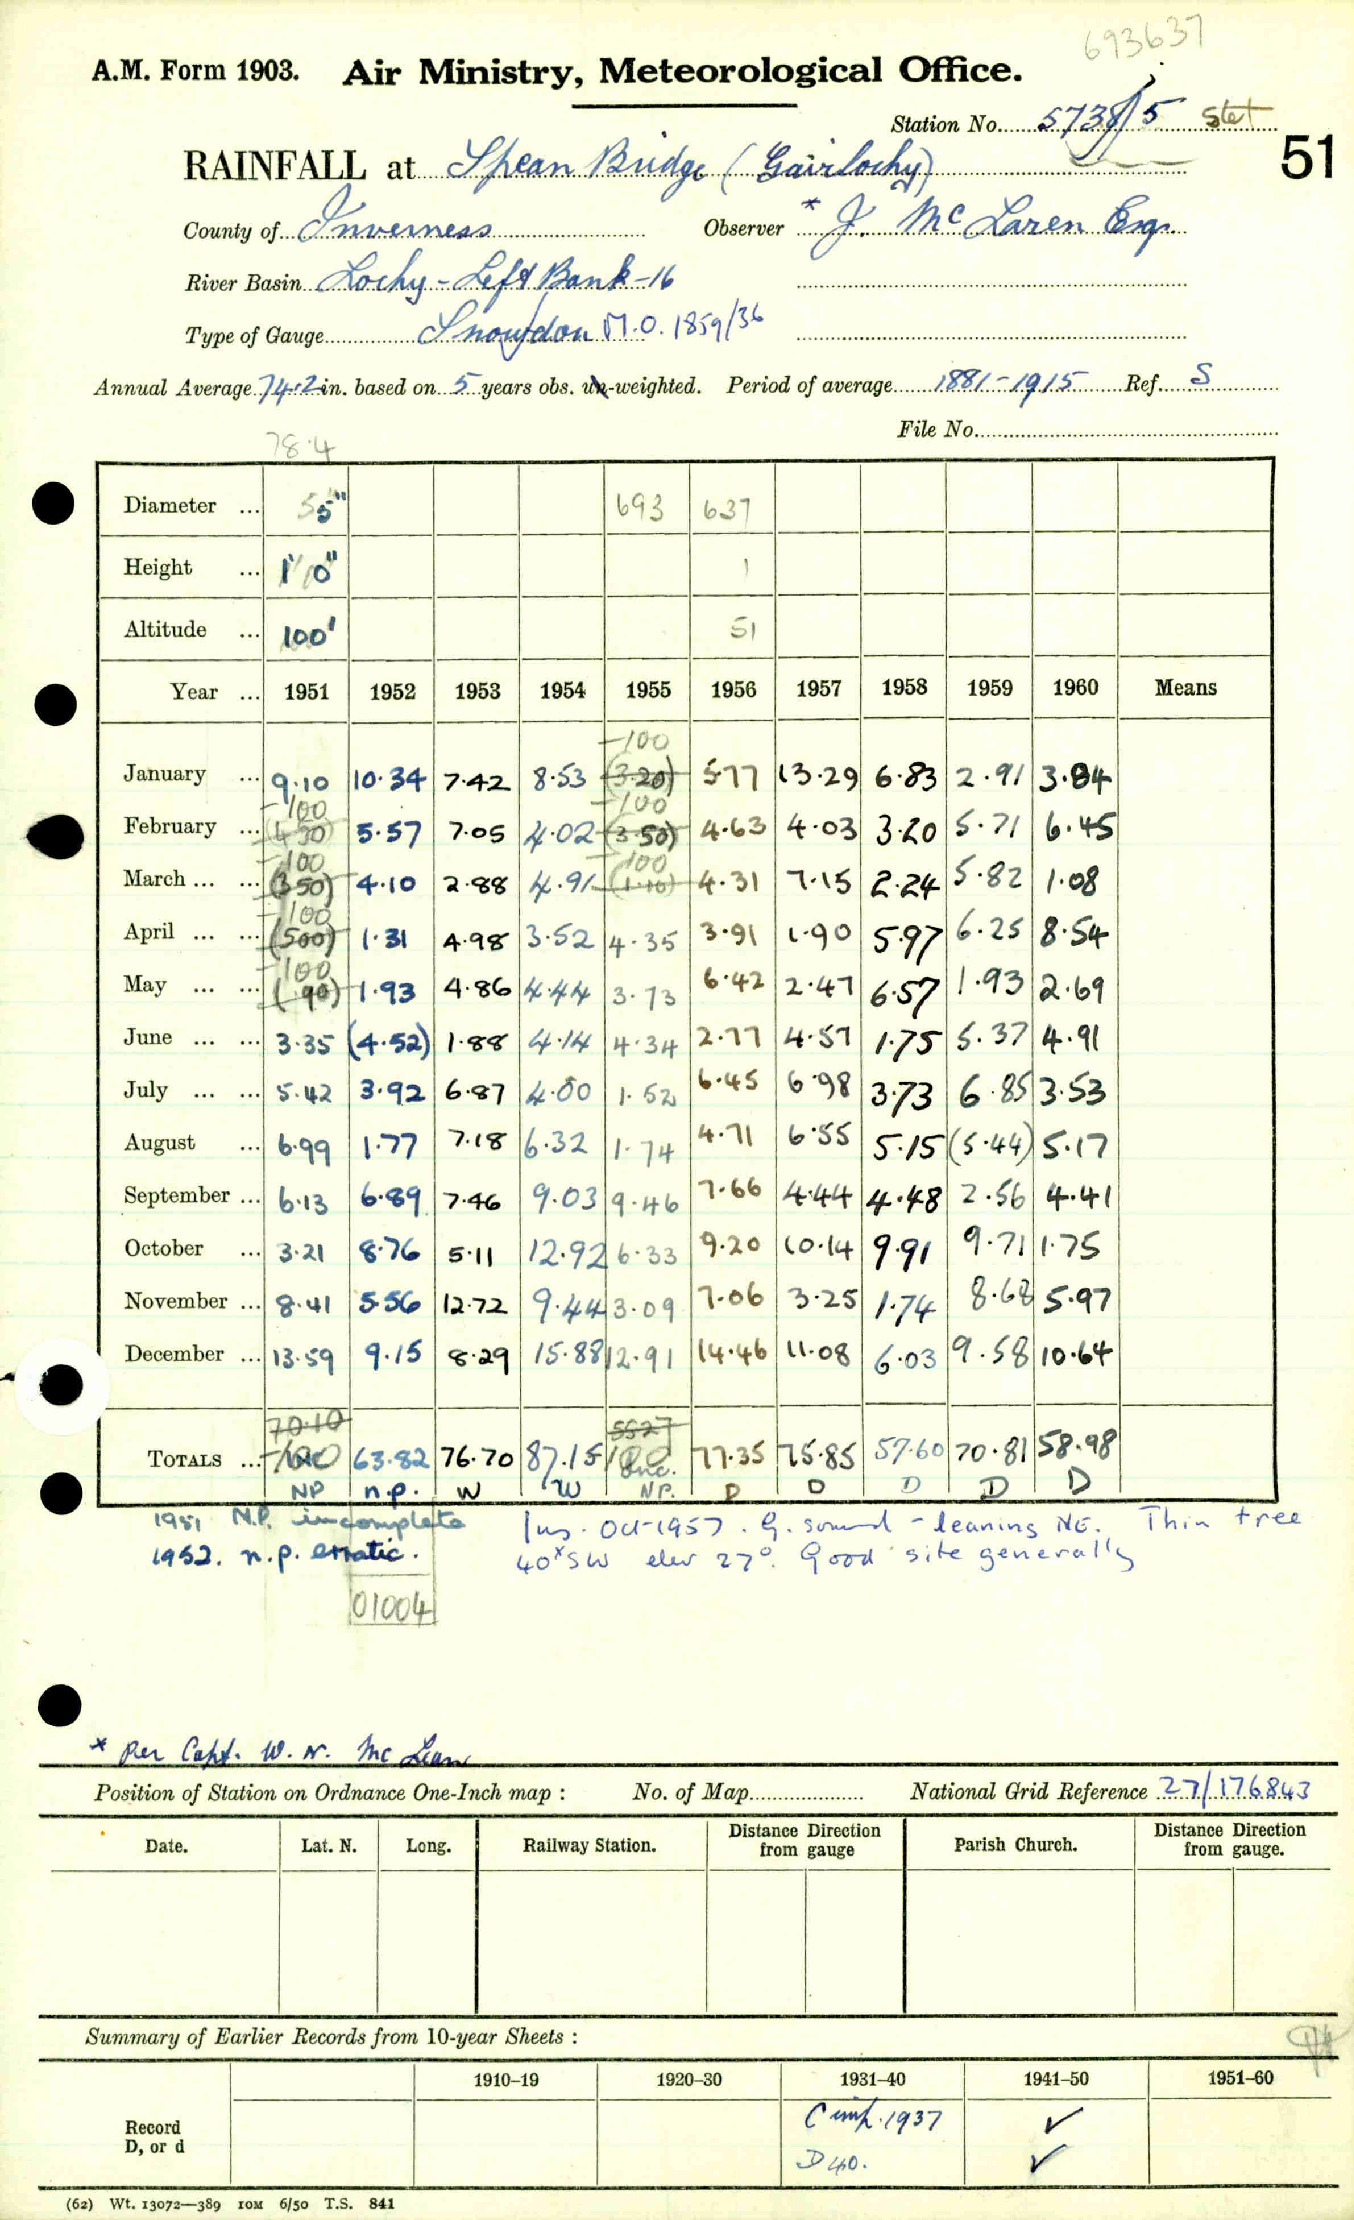 693637
A.M. Form 1903. Air Ministry, Meteorological Office.
Station No. 5738/5 Stet
51
RAINFALL at Spean Bridge (Gairlochy)
County of Inverness Observer * J. McLaren Esq.
River Basin Lochy - Left Bank - 16
Type of Gauge Snowdon M.O. 1859/36
Annual Average 74.2 in. based on 5 years obs. un-weighted. Period of average 1881-1915 Ref. S
78.4
File No.
Diameter ... 5" 693 637
Height ... 1' 0" 1
Altitude ... 100' 51
Year ... 1951 1952 1953 1954 1955 1956 1957 1958 1959 1960 Means
-100
January ... 9.10 10.34 7.42 8.53 (3.20) 5.77 13.29 6.83 2.91 3.84
-100 -100
February ... 5.57 7.05 4.02 (3.50) 4.63 4.03 3.20 5.71 6.45
-100 -100
March ... ... (3.50) 4.10 2.88 4.91 4.31 7.15 2.24 5.82 1.08
-100
April ... ... (500) 1.31 4.98 3.52 4.35 3.91 1.90 5.97 6.25 8.54
-100
May ... ... (.90) 1.93 4.86 4.44 3.73 6.42 2.47 6.57 1.93 2.69
June ... ... 3.35 (4.52) 1.88 4.14 4.34 2.77 4.57 1.75 5.37 4.91
July ... ... 5.42 3.92 6.87 4.00 1.52 6.45 6.98 3.73 6.85 3.53
August ... 6.99 1.77 7.18 6.32 1.74 4.71 6.55 5.15 (5.44) 5.17
September ... 6.13 6.89 7.46 9.03 9.46 7.66 4.44 4.48 2.56 4.41
October ... 3.21 8.76 5.11 12.92 6.33 9.20 10.14 9.91 9.71 1.75
November ... 8.41 5.56 12.72 9.44 3.09 7.06 3.25 1.74 8.68 5.97
December ... 13.59 9.15 8.29 15.88 12.91 14.46 11.08 6.03 9.58 10.64
70.10 5527
TOTALS ... -100 63.82 76.70 87.15 77.35 75.85 57.60 70.81 58.98
NP n.p. W W N.P. D D D D D
1951 N.P. incomplete Ins. Oct 1957. G. sound - leaning NE. Thin tree
1952. n.p. erratic. 40ˣSW elev 27°. Good site generally
01004
* Per Capt. W. N. McLean
Position of Station on Ordnance One-Inch map : No. of Map National Grid Reference 27/176843
Date. Lat. N. Long. Railway Station. Distance from gauge Direction Parish Church. Distance from gauge. Direction
Summary of Earlier Records from 10-year Sheets :
1910–19 1920–30 1931–40 1941–50 1951–60
Record D, or d C imp. 1937 ✓
D 40. ✓
(62) Wt. 13072—389 10M 6/50 T.S. 841